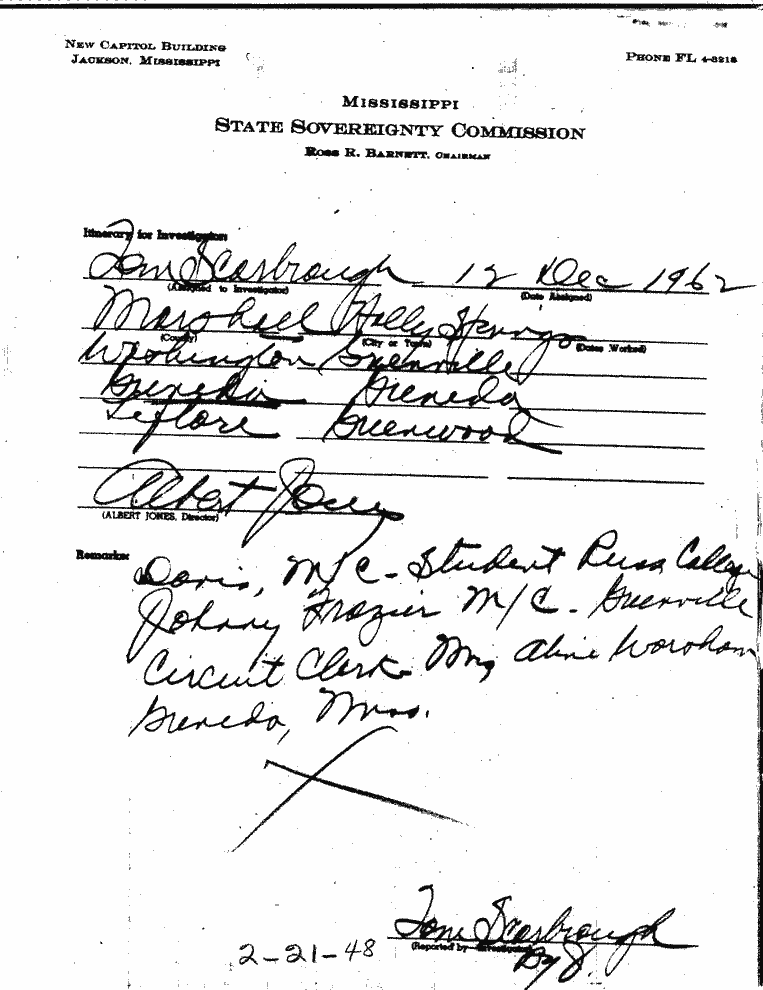 NEW CAPITOL BUILDING
JACKSON, MISSISSIPPI
PHONE FL 4-3218
MISSISSIPPI
STATE SOVEREIGNTY COMMISSION
ROSS R. BARNETT, CHAIRMAN
Itinerary for Investigator:
Tom Scarbrough 12 Dec 1962
(Assigned to Investigator) (Date Assigned)
Marshall Holly Springs
(County) (City or Town) (Dates Worked)
Washington Greenville
Grenada Grenada
Leflore Greenwood
Albert Jones
(ALBERT JONES, Director)
Remarks:
Davis, M/C - Student Rusa College
Johnny Frazier M/C - Greenville
Circuit Clerk Mrs Aline
Grenada, Miss.
Tom Scarbrough
(Reported by Investigator)
By J.
2-21-48